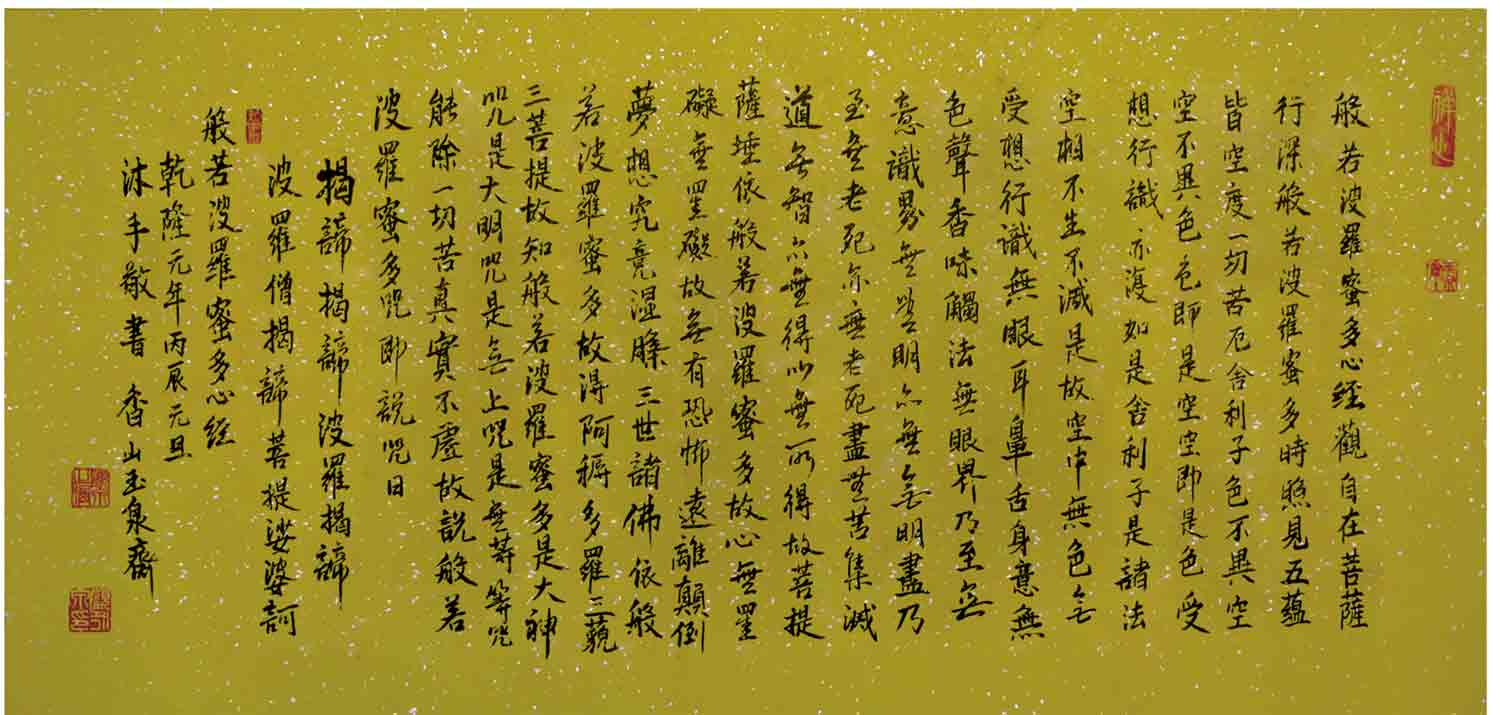 般若波羅蜜多心経觀自在菩薩
行深般若波羅蜜多時照見五蘊
皆空度一切苦厄舍利子色不異空
空不異色色即是空空即是色受
想行識亦復如是舍利子是諸法
空相不生不滅是故空中無色無
受想行識無眼耳鼻舌身意無
色聲香味觸法無眼界乃至無
意識界無無明亦無無明盡乃
至無老死亦無老死盡無苦集滅
道無智亦無得以無所得故菩提
薩埵依般若波羅蜜多故心無罣
礙無罣礙故無有恐怖遠離顛倒
夢想究竟涅槃三世諸佛依般
若波羅蜜多故得阿耨多羅三藐
三菩提故知般若波羅蜜多是大神
咒是大明咒是無上咒是無等等咒
能除一切苦真實不虛故說般若
波羅蜜多咒即說咒曰
揭諦揭諦波羅揭諦
波羅僧揭諦菩提娑婆訶
般若波羅蜜多心経
乾隆元年丙辰元旦
沐手敬書 香山玉泉齋